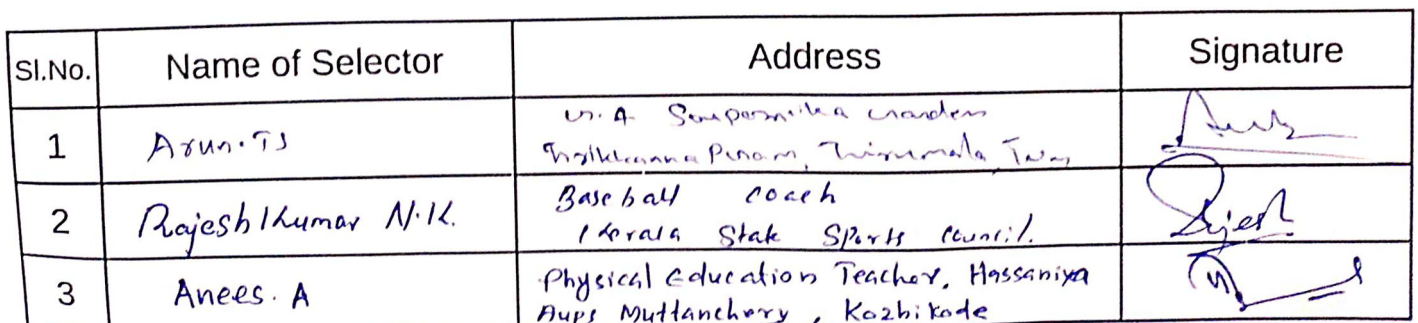 Sl.No. Name of Selector Address Signature
1 Arun. TS Souparnika Garden
Thirumala Tvm
2 Rajesh Kumar N.K. Baseball coach
Kerala State Sports Council.
Rajesh
3 Anees. A Physical Education Teacher, Hassaniya
Aups Muttanchery, Kozhikode